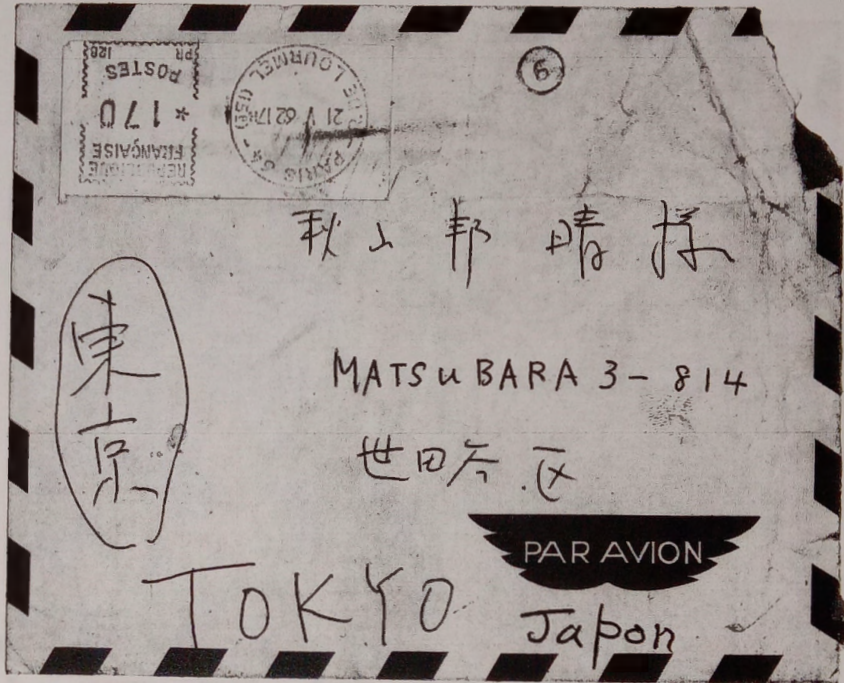 REPUBLIQUE
FRANÇAISE
★ 170
POSTES
PR 128
PARIS 34 - R. DE LOURMEL (15E)
21 V 62 17H
6
秋山邦晴様
MATSUBARA 3-814
世田谷区
東京
PAR AVION
TOKYO
Japon